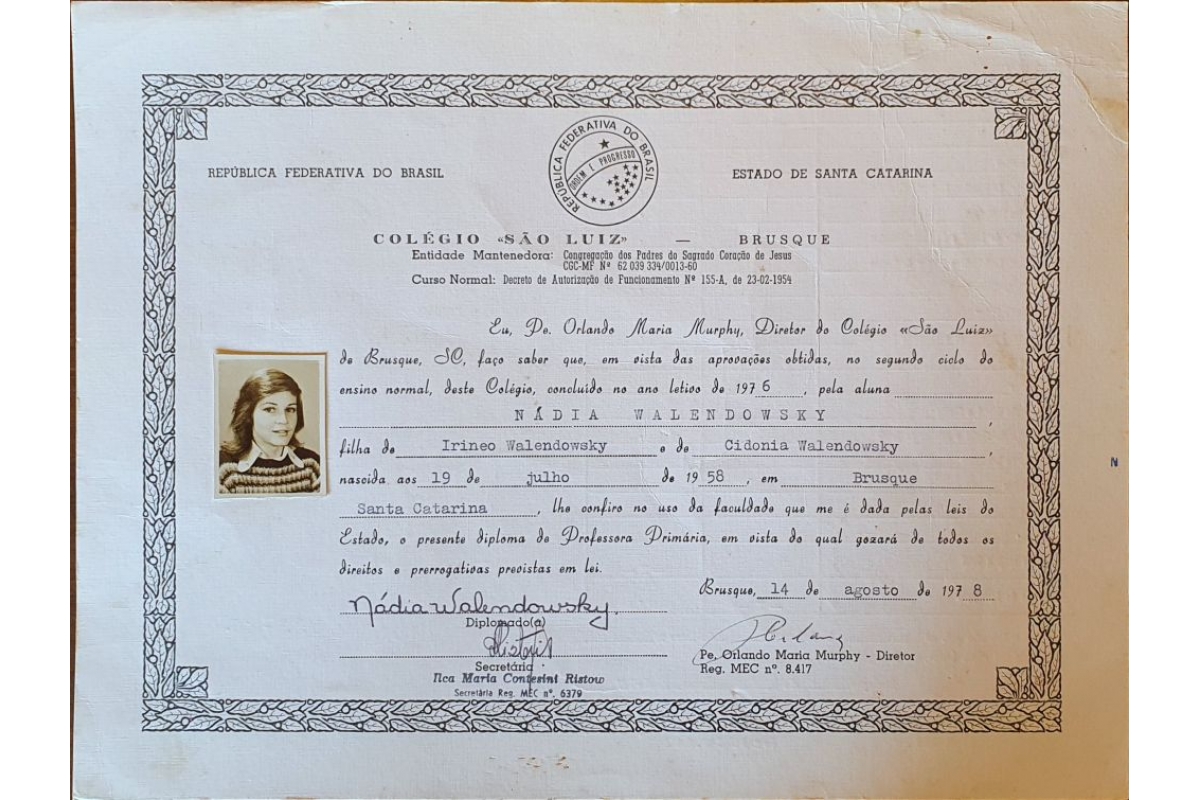 REPÚBLICA FEDERATIVA DO BRASIL
REPÚBLICA FEDERATIVA DO BRASIL
ORDEM E PROGRESSO
ESTADO DE SANTA CATARINA
COLÉGIO «SÃO LUIZ» — BRUSQUE
Entidade Mantenedora: Congregação dos Padres do Sagrado Coração de Jesus
CGC-MF Nº 62 039 334/0013-60
Curso Normal: Decreto de Autorização de Funcionamento Nº 155-A, de 23-02-1954
Eu, Pe. Orlando Maria Murphy, Diretor do Colégio «São Luiz»
de Brusque, SC, faço saber que, em vista das aprovações obtidas, no segundo ciclo do
ensino normal, deste Colégio, concluído no ano letivo de 1976, pela aluna
NÁDIA WALENDOWSKY,
filha de Irineo Walendowsky e de Cidonia Walendowsky,
nascida aos 19 de julho de 1958, em Brusque
Santa Catarina, lhe confiro no uso da faculdade que me é dada pelas leis do
Estado, o presente diploma de Professora Primária, em vista do qual gozará de todos os
direitos e prerrogativas previstas em lei.
Brusque, 14 de agosto de 1978
Nádia Walendowsky.
Diplomado(a)
Secretária
Ilca Maria Contesini Ristow
Secretária Reg. MEC nº. 6379
Pe. Orlando Maria Murphy - Diretor
Reg. MEC nº. 8.417
N